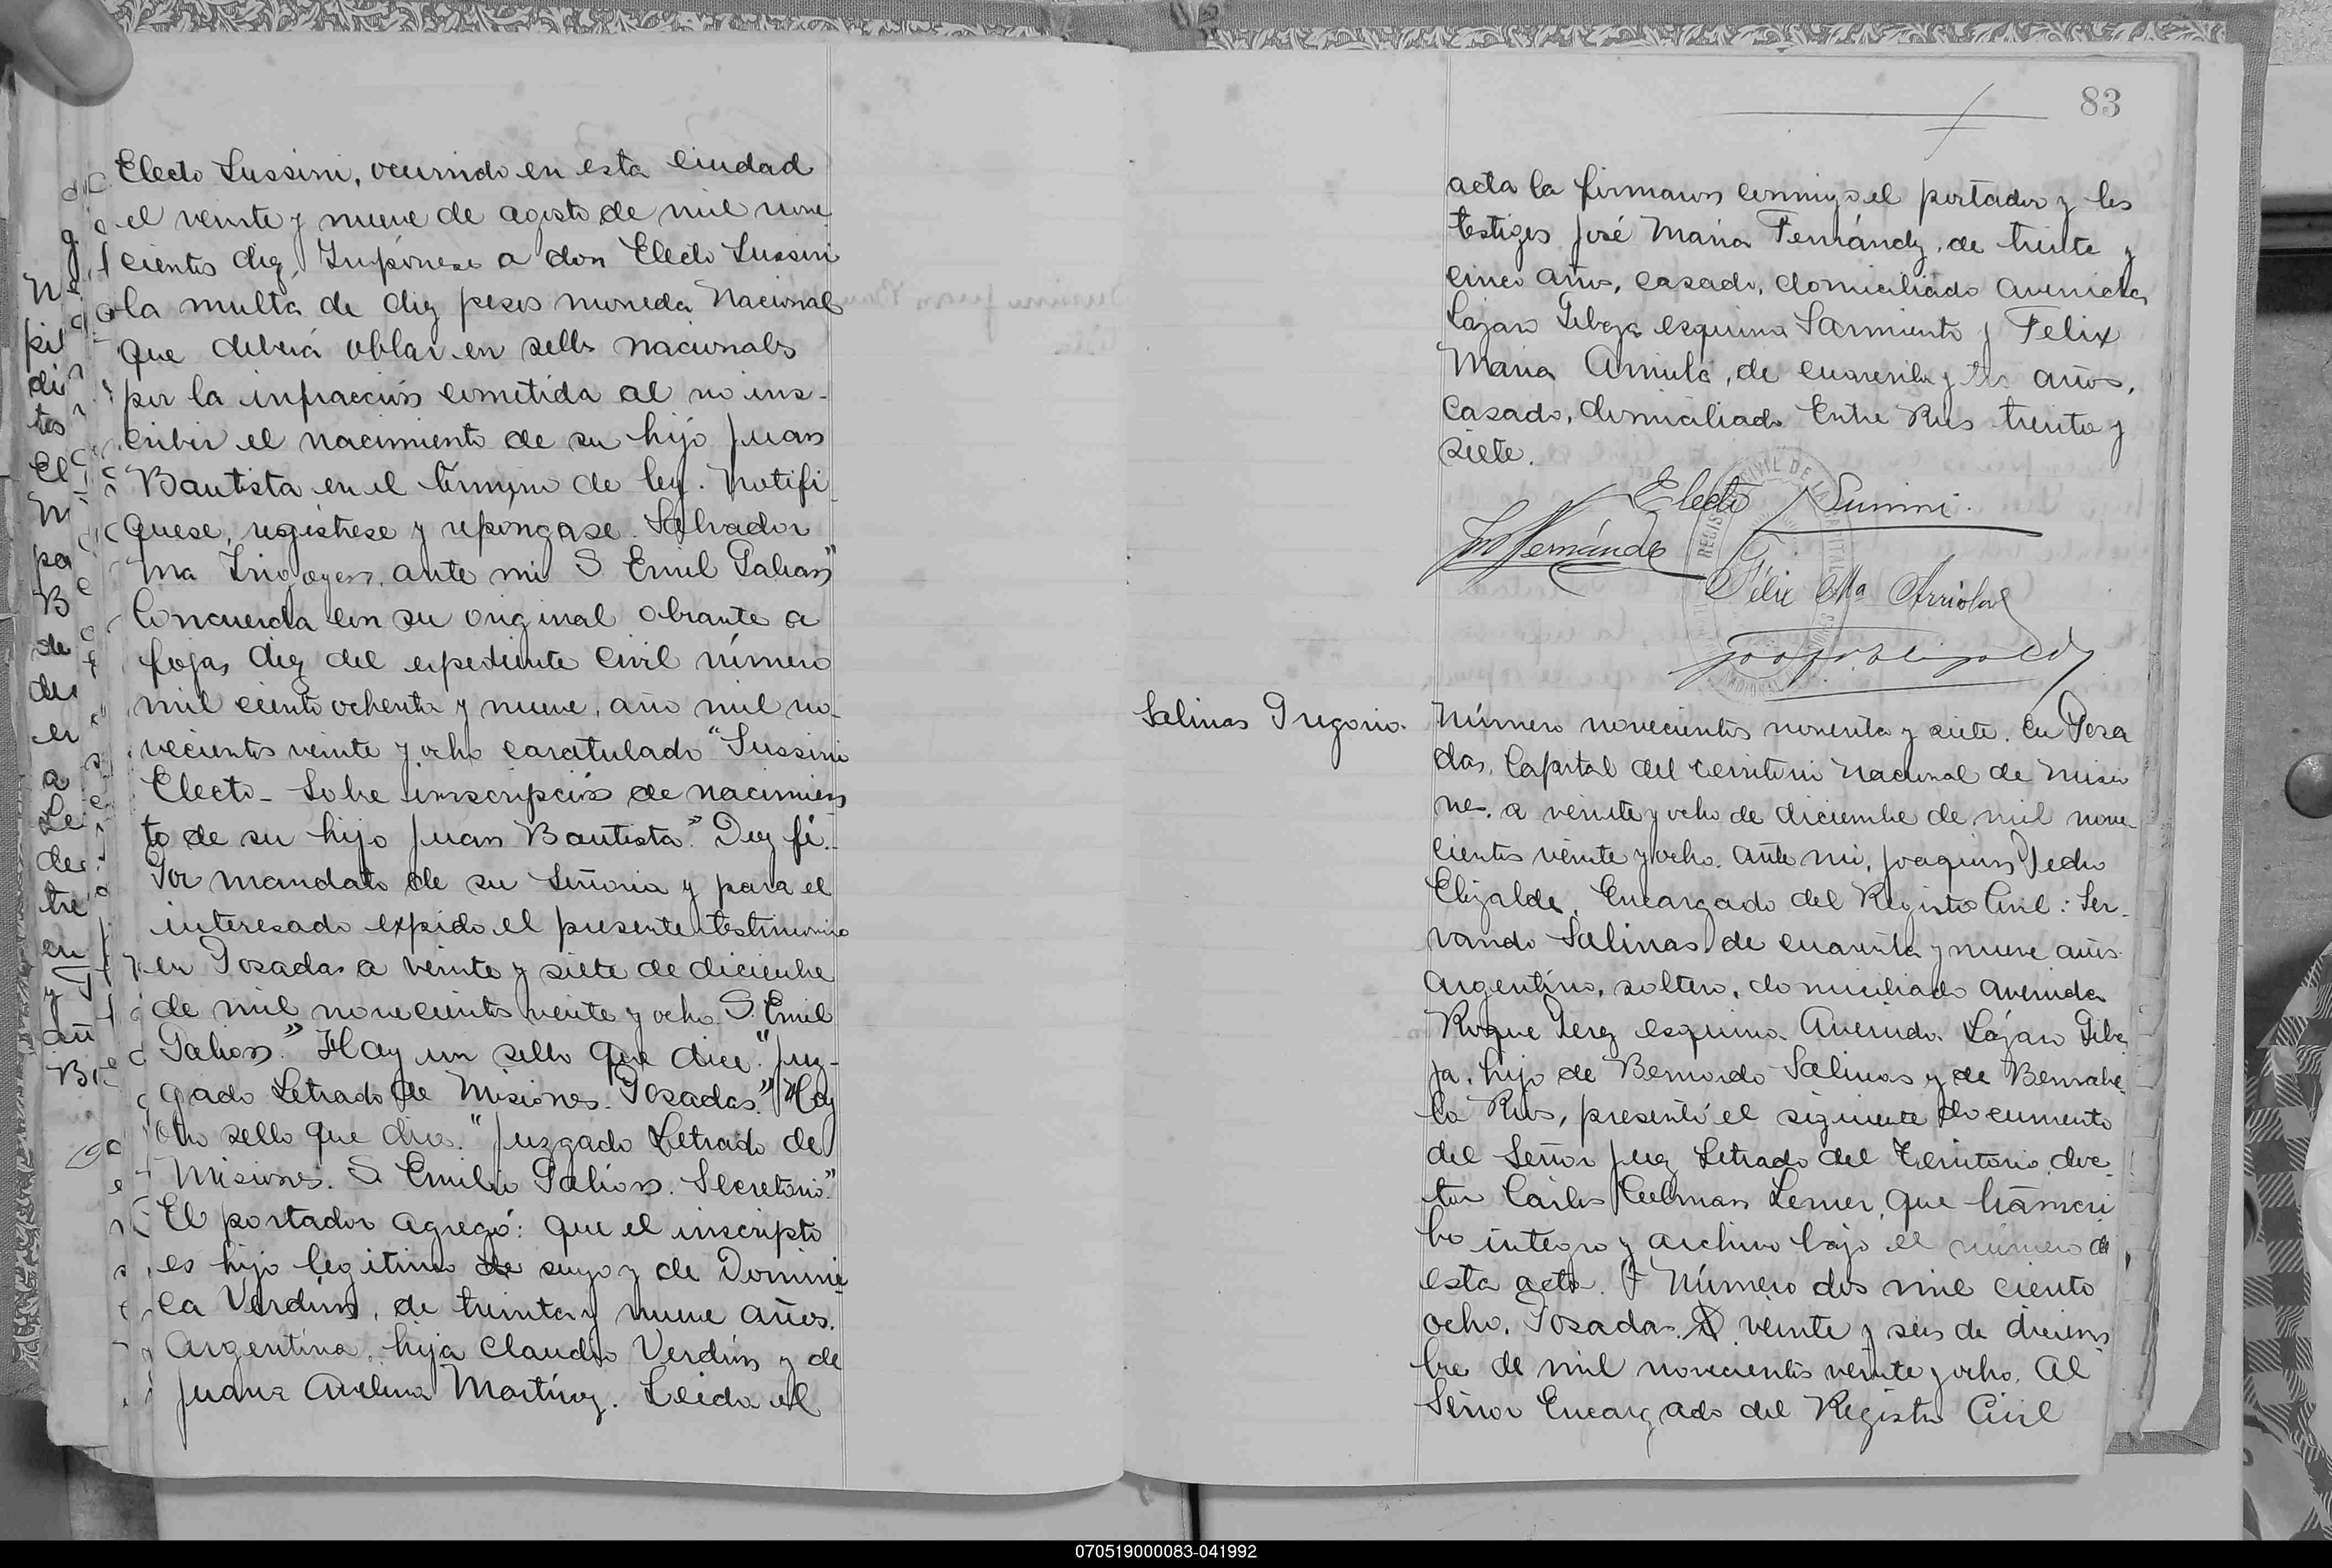 Electo Sussini, ocurrido en esta ciudad
el veinte y nueve de agosto de mil nove
cientos diez, Impónese a don Electo Sussini
la multa de diez pesos moneda nacional
que deberá oblar en sellos nacionales
por la infracción cometida al no ins-
cribir el nacimiento de su hijo Juan
Bautista en el término de ley. Notifí
quese, regístrese y repóngase. Salvador
Ma Irigoyen, ante mi S. Emil Palion"
Concuerda con su original obrante a
fojas diez del expediente civil número
mil ciento ochenta y nueve, año mil no-
vecientos veinte y ocho caratulado "Sussini
Electo - Sobre inscripción de nacimien
to de su hijo Juan Bautista." Doy fé.-
Por mandato de su Señoria y para el
interesado expido el presente testimonio
en Posadas a veinte y siete de diciembre
de mil novecientos veinte y ocho. S. Emil
Palion." Hay un sello que dice: "Juz-
gado Letrado de Misiones. Posadas." Hay
otro sello que dice: "Juzgado Letrado de
Misiones. S. Emilio Palion. Secretario."
El portador agregó: que el inscripto
es hijo legitimo de suyo y de Domini-
ca Verdún, de treinta y nueve años.
Argentina, hija Claudio Verdún y de
Juana Avelina Martínez. Leida el
83
acta la firmaron conmigo el portador y los
testigos José Maria Fernández, de treinta y
cinco años, casado, domiciliado avenida
Lázaro Gibaja esquina Sarmiento y Felix
Maria Arriola, de cuarenta y tres años,
casado, domiciliado Entre Rios treinta y
siete.
Electo Sussini.
Fernández
Félix Ma Arriola
Salinas Gregorio.
Número novecientos noventa y siete. En Posa
das, Capital del territorio Nacional de Misio
nes. a veinte y ocho de diciembre de mil nove-
cientos veinte y ocho. Ante mi, Joaquin Pedro
Elizalde, Encargado del Registro Civil: Ser-
vando Salinas de cuarenta y nueve años
Argentino, soltero, domiciliado avenida
Roque Perez esquina Avenida Lázaro Giba
ja, hijo de Bernardo Salinas y de Bernabe
la Rios, presentó el siguiente documento
del Señor Juez Letrado del Territorio, doc
tor Carlos Coelman Lerner, que transcri
bo integro y archivo bajo el número de
esta acta. Número dos mil ciento
ocho. Posadas. veinte y seis de diciem
bre de mil novecientos veinte y ocho. Al
Señor Encargado del Registro Civil
070519000083-041992